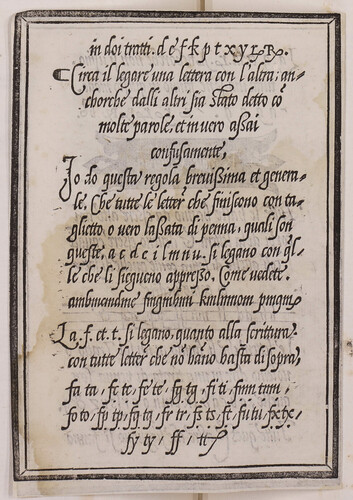 in doi tratti. d e f k p t x y Lꝶ.
Circa il legare una lettera con l'altra; an-
chorche dalli altri sia stato detto cō
molte parole, et in uero assai
confusamente,
Io do questa regola breuissima et genera-
le, Che tutte le letter' che finiscono con ta-
glietto o vero lassata di penna, quali son
queste, a c d e i l m n u. si legano con q̄l-
le che li siegueno appresso. Come vedete.
La. f. et. t. si legano, quanto alla scrittura
con tutte letter che nō hāno hasta di sopra,
fa ta, fe te, fg tg, fi ti, fm tm,
fo to, fp tp, fq tq, fr tr, fs ts, ft, fu tu, fx tx,
fy ty, ff, tt